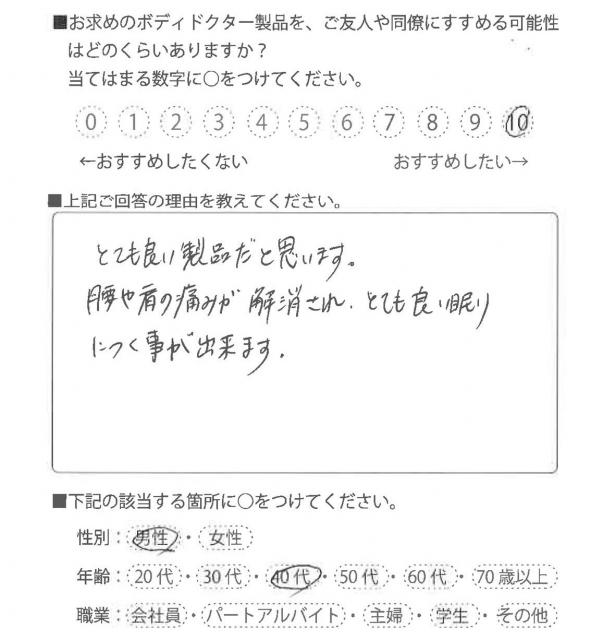 ■お求めのボディドクター製品を、ご友人や同僚にすすめる可能性
はどのくらいありますか？
当てはまる数字に○をつけてください。
0 1 2 3 4 5 6 7 8 9 10
←おすすめしたくない おすすめしたい→
■上記ご回答の理由を教えてください。
とても良い製品だと思います。
腰や肩の痛みが解消され、とても良い眠り
につく事が出来ます。
■下記の該当する箇所に○をつけてください。
性別：男性・女性
年齢：20代・30代・40代・50代・60代・70歳以上
職業：会社員・パートアルバイト・主婦・学生・その他